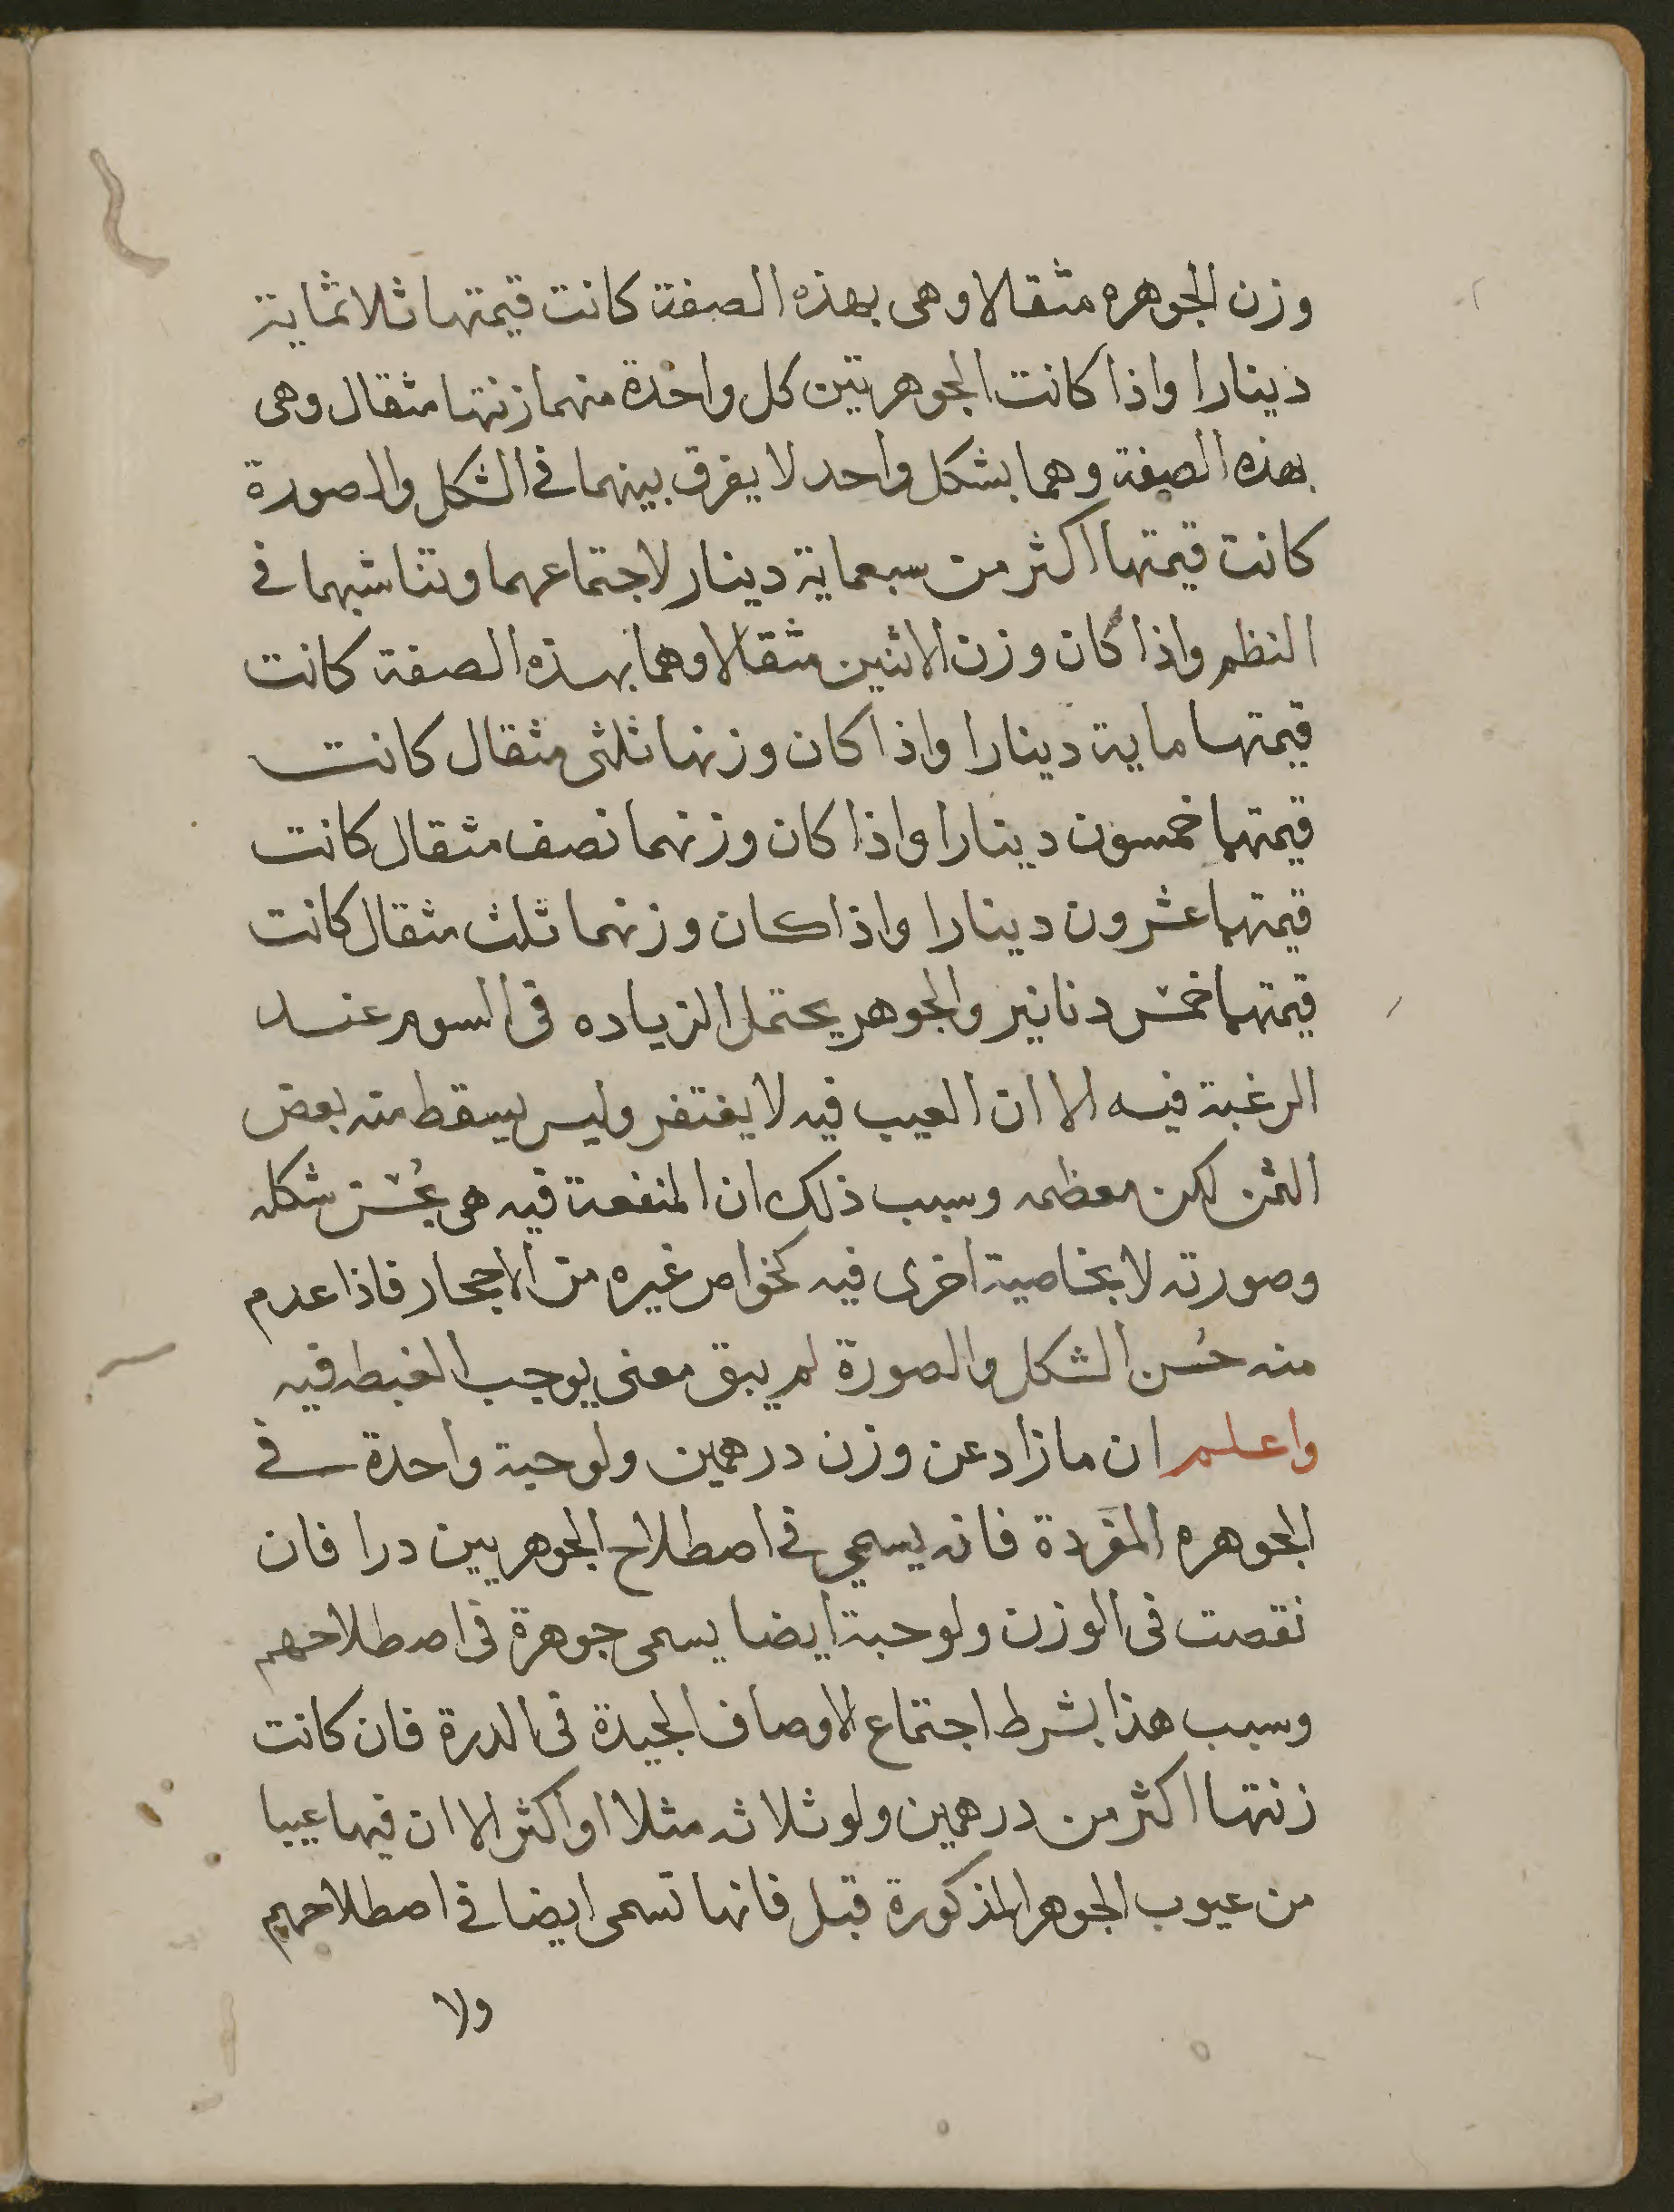 وزن الجوهره مثقالا وهى بهذه الصفة كانت قيمتها ثلاثماية
دينارا واذا كانت الجوهرتين كل واحدة منهما زنتها مثقال وهى
بهذه الصفة وهما بشكل واحد لا يفرق بينهما فى الشكل والصورة
كانت قيمتها اكثر من سبعماية دينار لاجتماعهما وتناسبهما فى
النظم واذا كان وزن الاثنين مثقالا وهما بهذه الصفة كانت
قيمتها ماية دينارا واذا كان وزنها ثلثى مثقال كانت
قيمتهما خمسون دينارا واذا كان وزنهما نصف مثقال كانت
قيمتهما عشرون دينارا واذا كان وزنهما ثلث مثقال كانت
قيمتهما خمس دنانير والجوهر يحتمل الزياده فى السوم عند
الرغبة فيه الا ان العيب فيه لا يغتفر وليس يسقط منه بعض
الثمن لكن معظمه وسبب ذلك ان المنفعة فيه هى بحُسن شكله
وصورته لا بخاصية اخرى فيه كخواص غيره من الاحجار فاذا عدم
منه حُسن الشكل والصورة لم يبق معنى يوجب الغبطه فيه
واعلم ان ما زاد عن وزن درهمين ولو حبة واحدة فى
الجوهره المفردة فانه يسمى فى اصطلاح الجوهريين درا فان
نقصت فى الوزن ولو حبة ايضا يسمى جوهرة فى اصطلاحهم
وسبب هذا بشرط اجتماع الاوصاف الجيدة فى الدرة فان كانت
زنتها اكثر من درهمين ولو ثلاثه مثلا او اكثر الا ان فيها عيبا
من عيوب الجوهر المذكورة قبل فانها تسمى ايضا فى اصطلاحهم
ولا